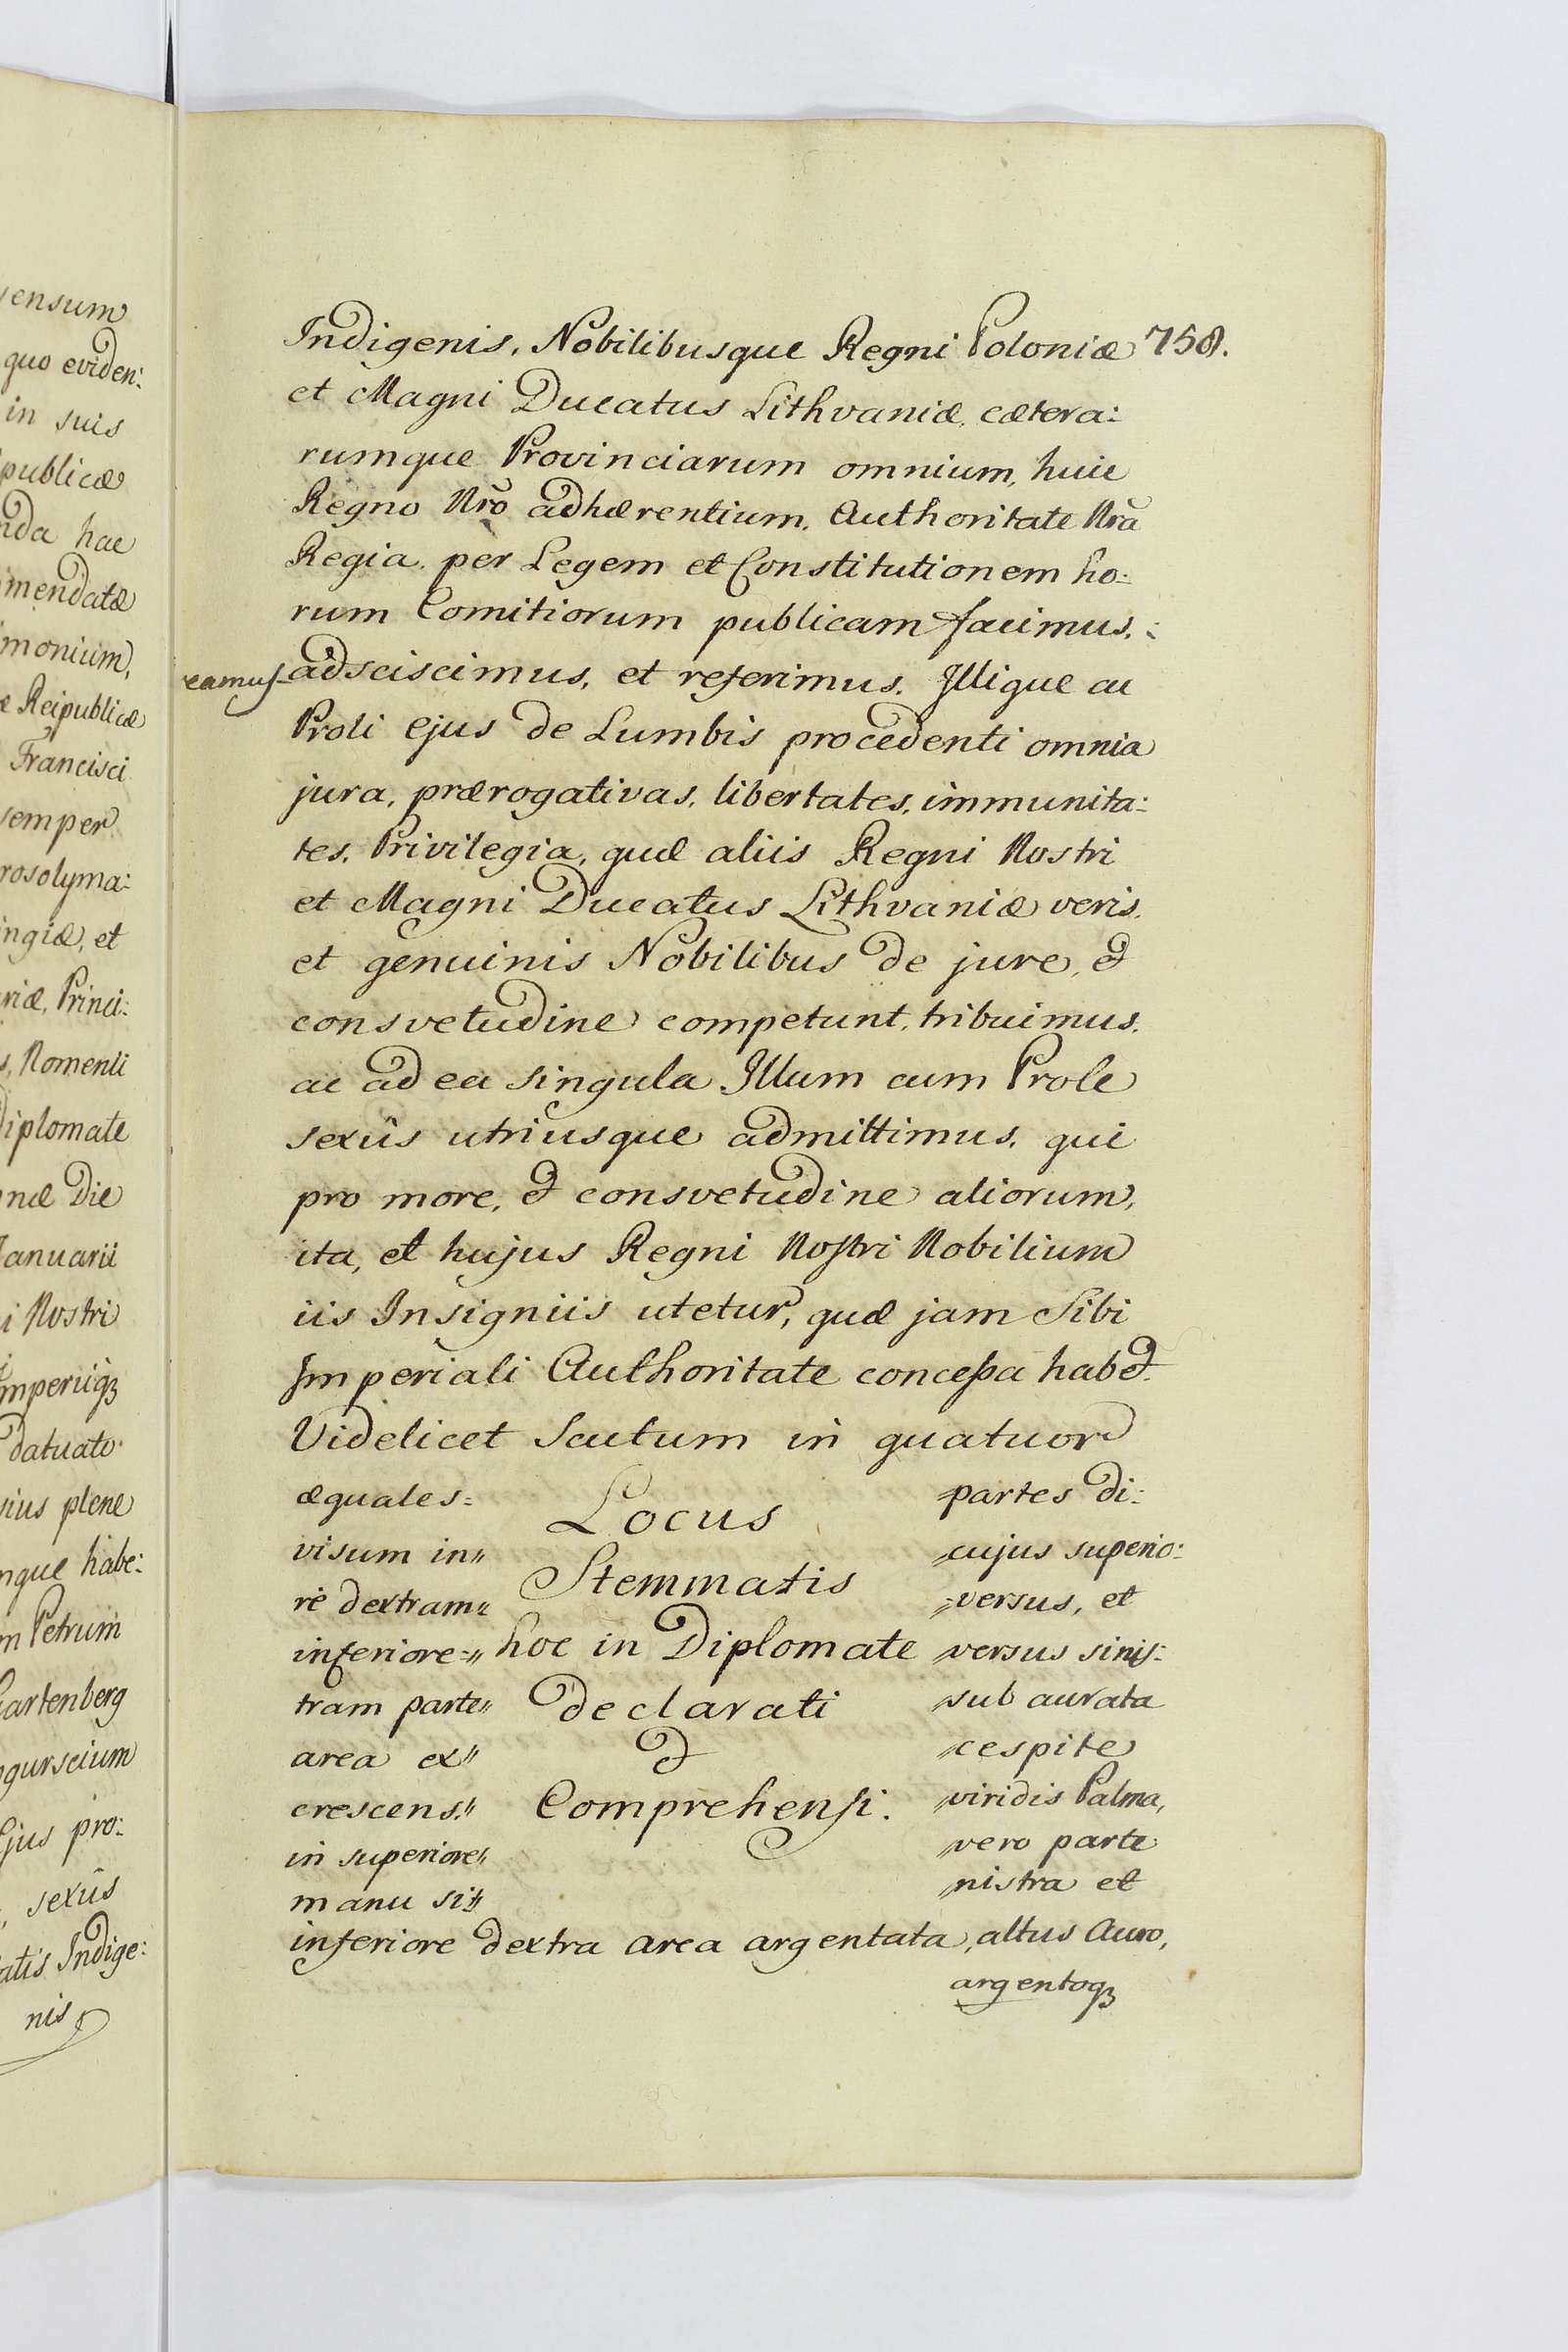 ensum
quo eviden:
in suis
publicæ
nda hac
mendatæ
monium,
æ Reipublicæ
Francisci
semper
rosolyma:
ingiæ, et
riæ, Princi:
s, Romenli
Diplomate
næ Die
Januarii
i Nostri
Imperiiqꝫ
datuato
sius plene
nque habe:
m Petrum
Gartenberg
ogurscium
Ejus pro:
, sexûs
atis Indige:
nis
Indigenis, Nobilibusque Regni Poloniæ 758.
et Magni Ducatus Lithvaniæ, cætera:
rumque Provinciarum omnium, huic
Regno Nrō adhærentium, Authoritate Nrā
Regia, per Legem et Constitutionem ho:
rum Comitiorum publicam facimus, :
eamus adsciscimus, et referimus. Illique ac
Proli ejus de Lumbis procedenti omnia
jura, prærogativas, libertates, immunita:
tes, Privilegia, quæ aliis Regni Nostri
et Magni Ducatus Lithvaniæ veris,
et genuinis Nobilibus de jure, &
consvetudine competunt, tribuimus,
ac ad ea singula Illum cum Prole
sexûs utriusque admittimus, qui
pro more, & consvetudine aliorum,
ita, et hujus Regni Nostri Nobilium
iis Insigniis utetur, quæ jam Sibi
Imperiali Authoritate concessa hab&.
Videlicet Scutum in quatuor
æquales= partes di:
visum in" cujus superio:
re dextram" versus, et
inferiore=" versus sinis:
tram parte" sub aurata
area ex" cespite
crescens," viridis Palma,
in superiore" vero parte
manu si" nistra et
Locus
Stemmatis
hoc in Diplomate
declarati
&
Comprehensi.
inferiore dextra area argentata, altus Auro,
argentoqꝫ